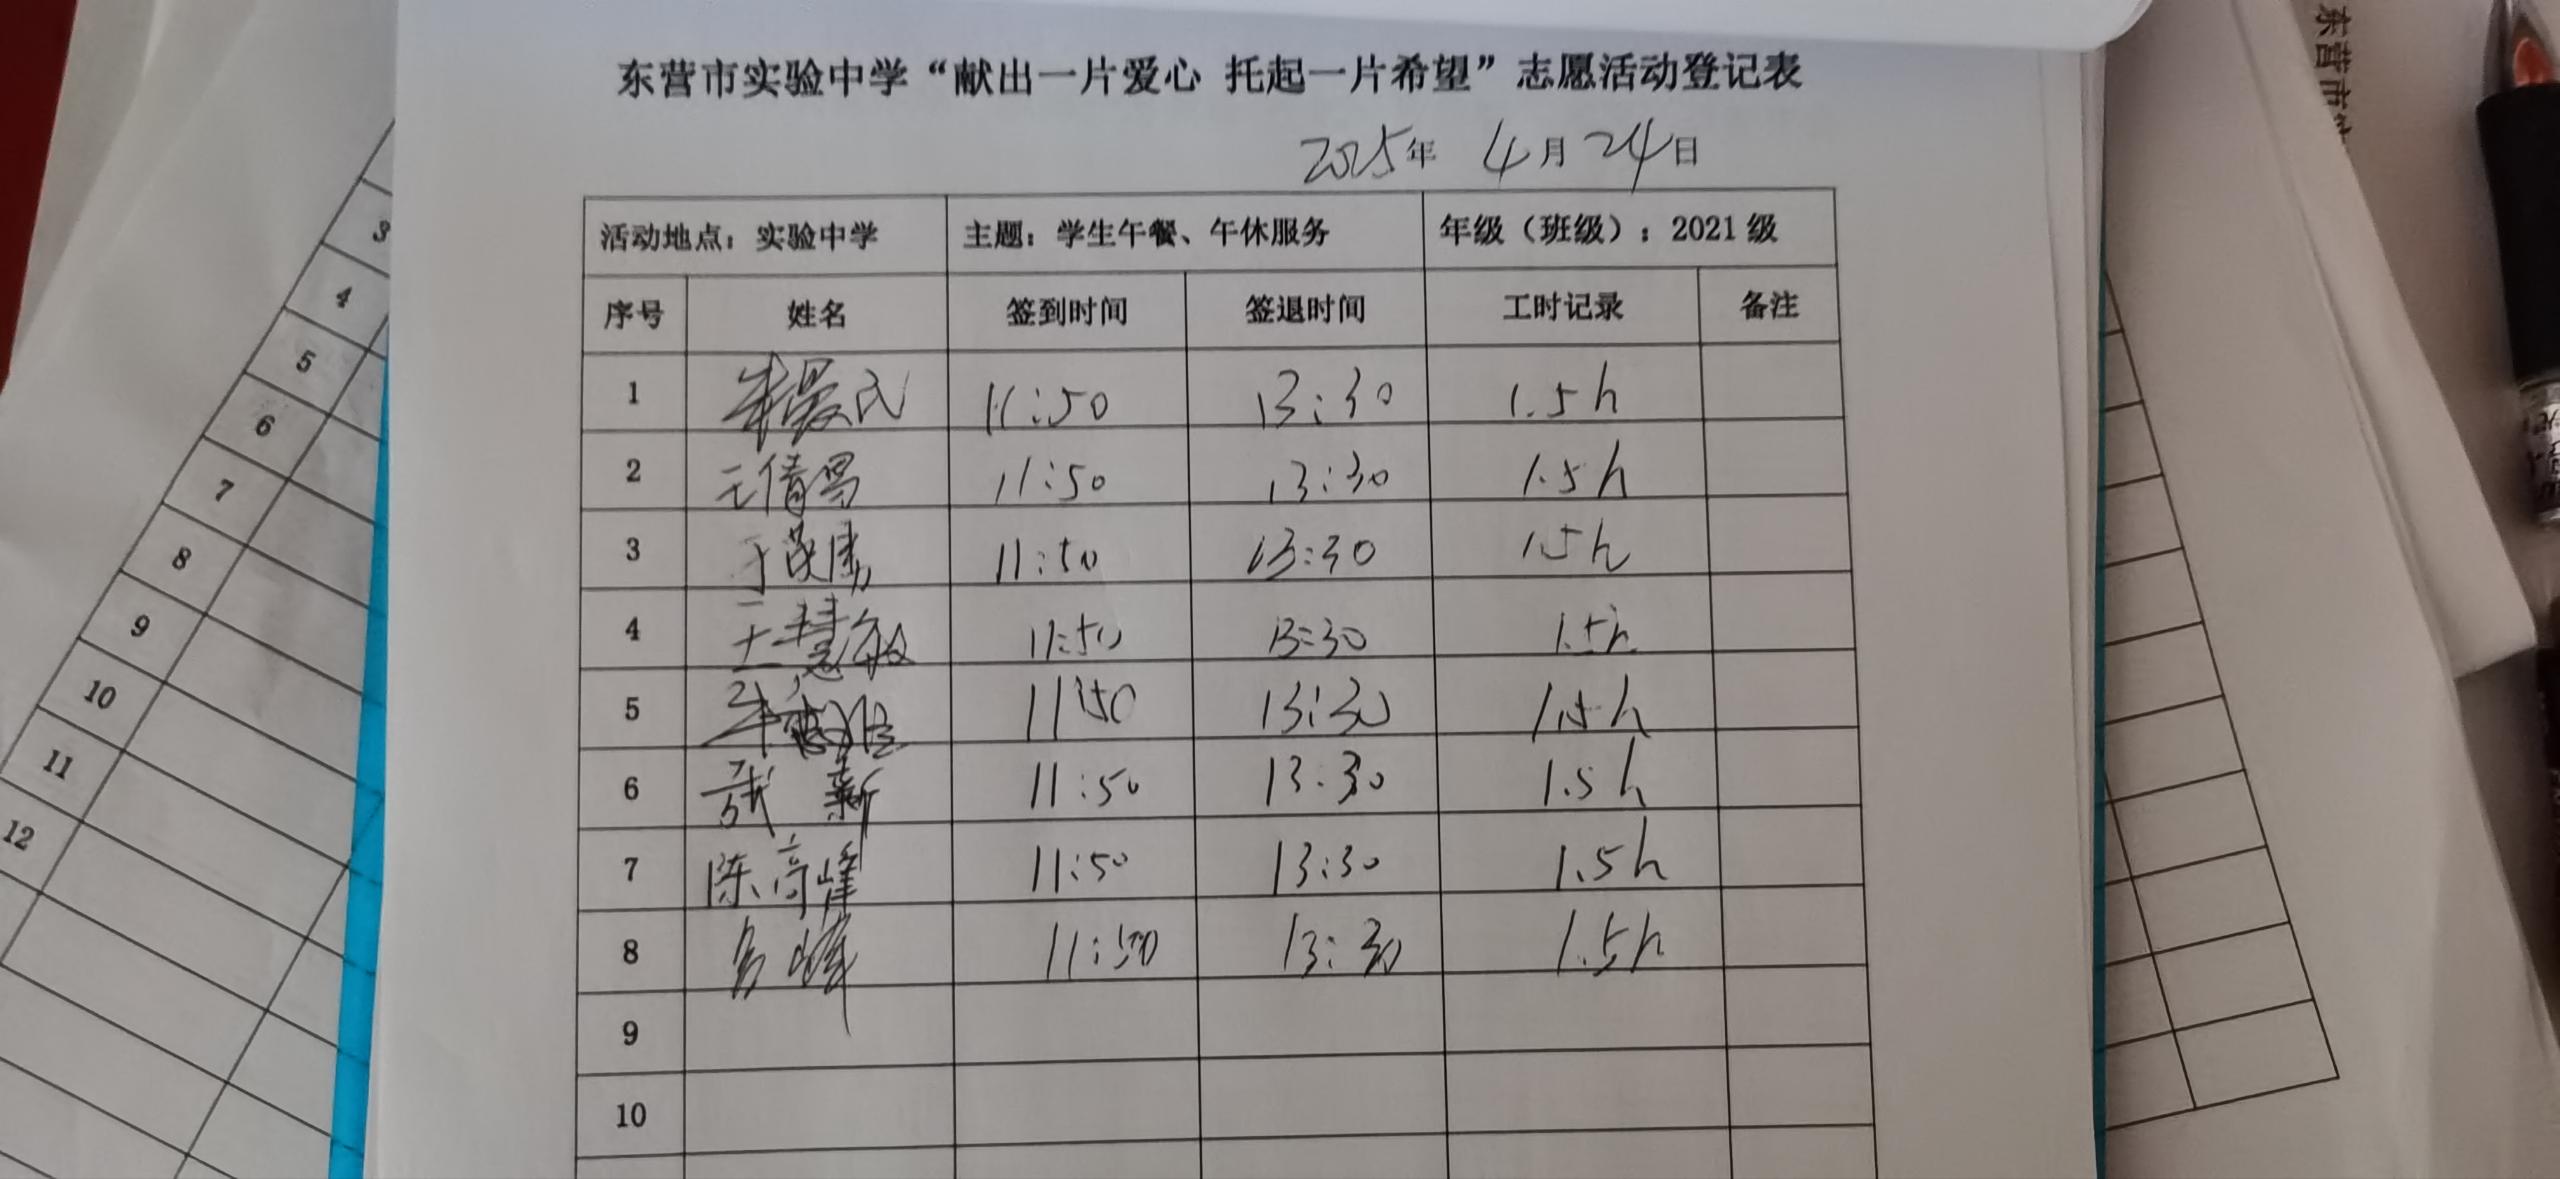 东营市实验中学“献出一片爱心 托起一片希望”志愿活动登记表
2025年 4月24日
活动地点：实验中学 主题：学生午餐、午休服务 年级（班级）：2021级
序号 姓名 签到时间 签退时间 工时记录 备注
1 11:50 13:30 1.5h
2 11:50 13:30 1.5h
3 11:50 13:30 1.5h
4 王慧敏 11:50 13:30 1.5h
5 11:50 13:30 1.5h
6 张新 11:50 13:30 1.5h
7 陈高峰 11:50 13:30 1.5h
8 11:50 13:30 1.5h
9
10
3
4
5
6
7
8
9
10
11
12
东营市